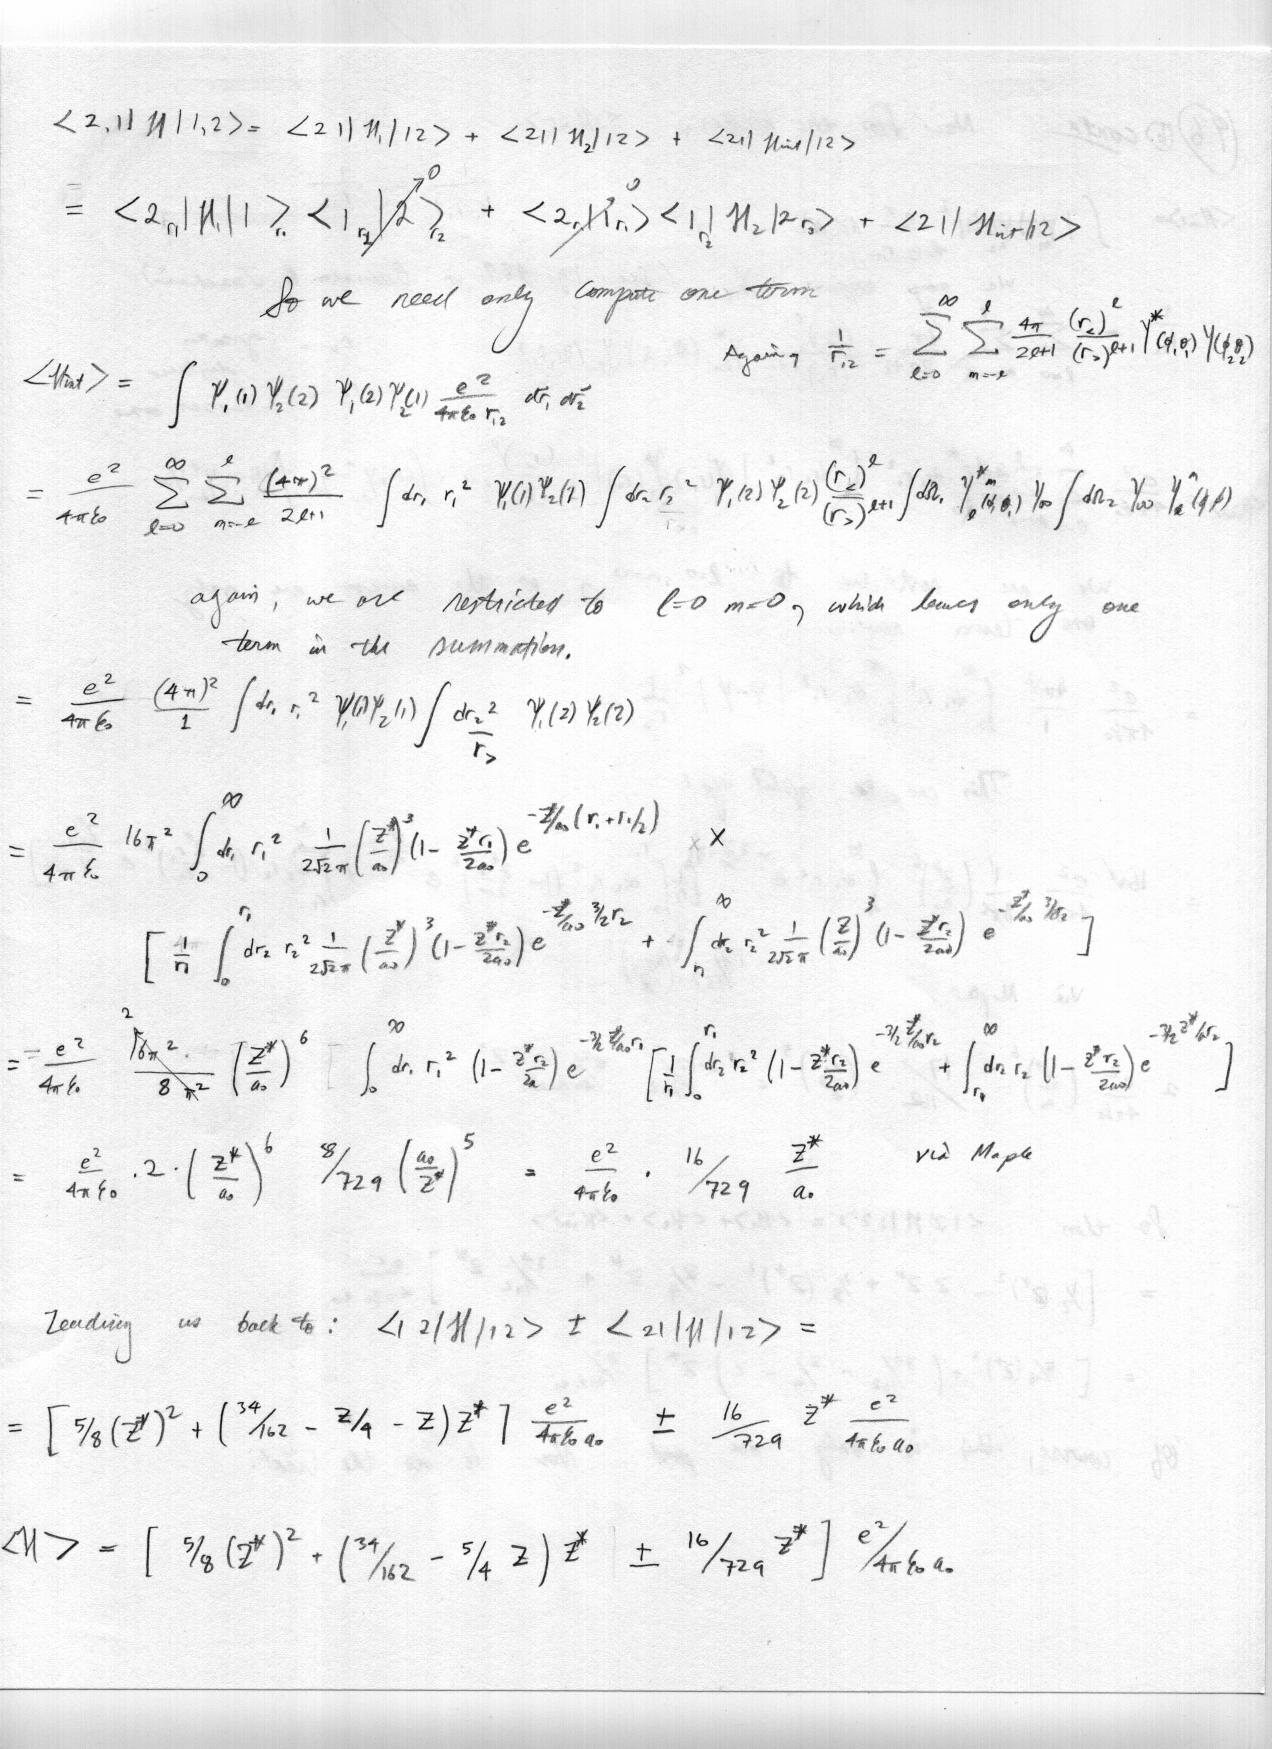 <2,1|H|1,2> = <21|H₁|12> + <21|H₂|12> + <21|H_int|12>
= <2_r₁|H₁|1>_r₁ <1_r₂|2>_r₂ ↗0 + <2_r₁|1_r₁> 0 <1_r₂|H₂|2_r₂> + <21|H_int|12>
So we need only compute one term
Again, 1/r₁₂ = ∑_{l=0}^{∞} ∑_{m=-l}^{l} 4π/(2l+1) (r_<)^l/(r_>)^{l+1} Y*(φ₁θ₁) Y(φ₂θ₂)
<H_int> = ∫ ψ₁(1) ψ₂(2) ψ₁(2) ψ₂(1) e²/(4πε₀ r₁₂) dr⃗₁ dr⃗₂
= e²/(4πε₀) ∑_{l=0}^{∞} ∑_{m=-l}^{l} (4π)²/(2l+1) ∫dr₁ r₁² ψ₁(1)ψ₂(1) ∫dr₂ r₂² ψ₁(2)ψ₂(2) (r_<)^l/(r_>)^{l+1} ∫dΩ₁ Y_l^{*m}(φ₁θ₁) Y₀₀ ∫dΩ₂ Y₀₀ Y_l^m(θφ)
again, we are restricted to l=0 m=0, which leaves only one
term in the summation.
= e²/(4πε₀) (4π)²/1 ∫dr₁ r₁² ψ₁(1)ψ₂(1) ∫ dr₂²/r_> ψ₁(2) ψ₂(2)
= e²/(4πε₀) 16π² ∫₀^∞ dr₁ r₁² 1/(2√2π) (Z*/a₀)³ (1 - Z*r₁/2a₀) e^{-Z*/a₀ (r₁+r₁/2)} ×
[ 1/r₁ ∫₀^{r₁} dr₂ r₂² 1/(2√2π) (Z*/a₀)³ (1 - Z*r₂/2a₀) e^{-Z*/a₀ 3/2 r₂} + ∫_{r₁}^∞ dr₂ r₂² 1/(2√2π) (Z/a₀)³ (1 - Z*r₂/2a₀) e^{-Z*/a₀ 3/2 r₂} ]
= e²/(4πε₀) 2 16π²/8π² (Z*/a₀)⁶ ∫₀^∞ dr₁ r₁² (1 - Z*r₂/2a) e^{-3/2 Z*/a₀ r₁} [ 1/r₁ ∫₀^{r₁} dr₂ r₂² (1 - Z*r₂/2a₀) e^{-3/2 Z*/a₀ r₂} + ∫_{r₁}^∞ dr₂ r₂ (1 - Z*r₂/2a₀) e^{-3/2 Z*/a₀ r₂} ]
= e²/(4πε₀) · 2 · (Z*/a₀)⁶ 8/729 (a₀/Z*)⁵ = e²/(4πε₀) · 16/729 Z*/a₀ via Maple
Leading us back to: <12|H|12> ± <21|H|12> =
= [ 5/8 (Z*)² + (34/162 - Z/4 - Z) Z* ] e²/(4πε₀a₀) ± 16/729 Z* e²/(4πε₀a₀)
<H> = [ 5/8 (Z*)² + (34/162 - 5/4 Z) Z* ± 16/729 Z* ] e²/4πε₀a₀